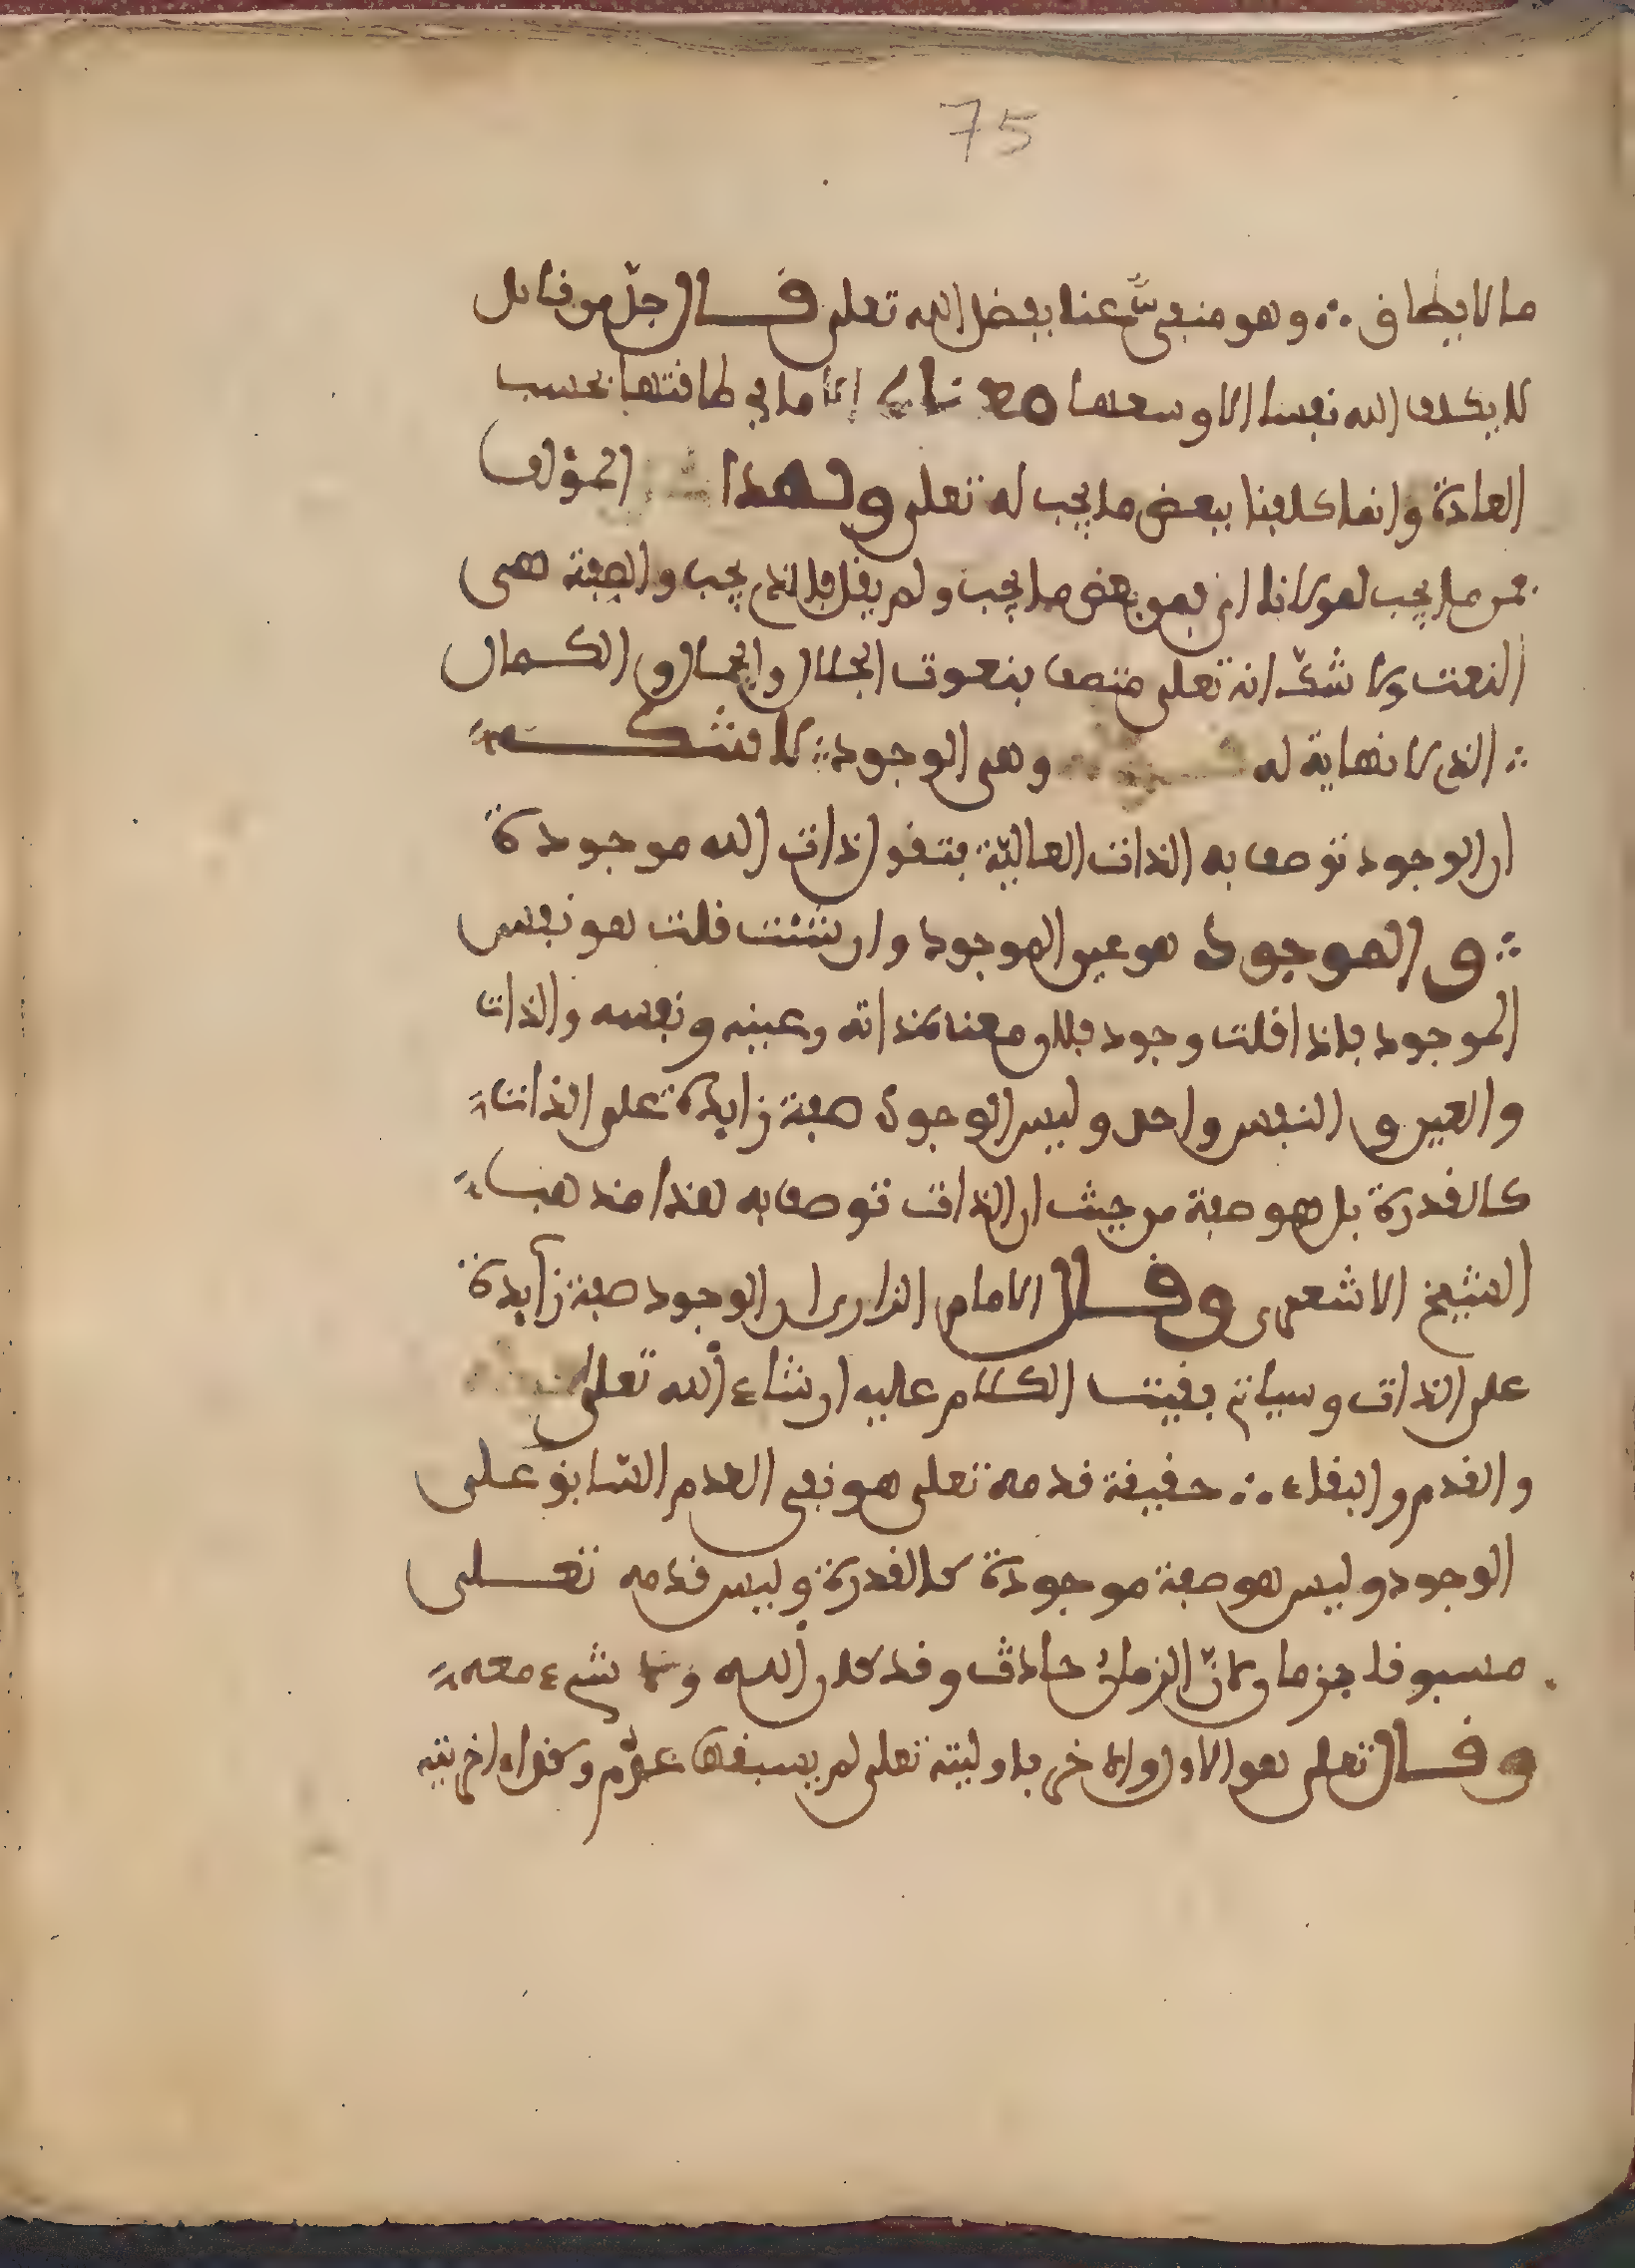 75
ما لا يطاق ∴ وهو منفي عنا بفضل الله تعلى قال جل من قائل
لا يكلف الله نفسا الا وسعها ما في طاقتها بحسب
العادة وانما كلفنا ببعض ما يجب له تعلى ولهذا المؤلف
فمن ما يجب لمولانا اي فمن بعض ما يجب ولم يقل فالذي يجب والصفة هي
النعت ولا شك انه تعلى متصف بنعوت الجلال والجمال والكمال
∴ الذي لا نهاية له وهي الوجود ∴ لا شك
ان الوجود توصف به الذات العالية فتقول ذات الله موجودة
∴ و الموجود هو عين الموجود وان شئت قلت هو نفس
الموجود فاذا قلت وجود فلان معناه ذاته وعينه ونفسه والذات
والعين والنفس واحد وليس الوجود صفة زايدة على الذات
كالقدرة بل هو صفة من حيث ان الذات توصف به هذا مذهب
الشيخ الاشعري وقال الامام الرازي ان الوجود صفة زايدة
على الذات وسياتي بقيت الكلام عليه ان شاء الله تعلى
والقدم والبقاء ∴ حقيقة قدمه تعلى هو نفي العدم السابق على
الوجود وليس هو صفة موجودة كالقدرة وليس قدمه تعلى
مسبوقا جزما ولان الزمان حادث وقد كان الله ولا شيء معه
وقال تعلى هو الاول والاخر فاوليته تعلى لم يسبقها عدم وكذا اخريته